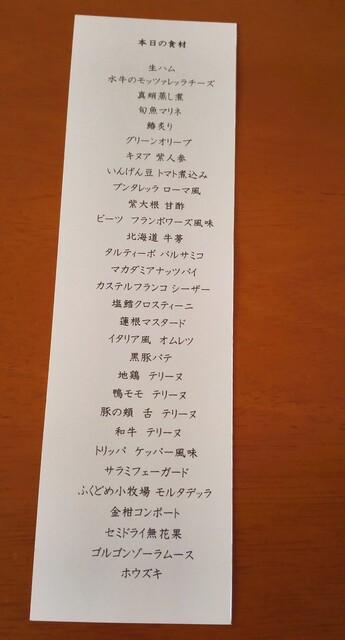 本日の食材
生ハム
水牛のモッツァレッラチーズ
真蛸蒸し煮
旬魚マリネ
鰆炙り
グリーンオリーブ
キヌア 紫人参
いんげん豆 トマト煮込み
プンタレッラ ローマ風
紫大根 甘酢
ビーツ フランボワーズ風味
北海道 牛蒡
タルティーボ バルサミコ
マカダミアナッツパイ
カステルフランコ シーザー
塩鱈クロスティーニ
蓮根マスタード
イタリア風 オムレツ
黒豚パテ
地鶏 テリーヌ
鴨モモ テリーヌ
豚の頬 舌 テリーヌ
和牛 テリーヌ
トリッパ ケッパー風味
サラミフェガード
ふくどめ小牧場 モルタデッラ
金柑コンポート
セミドライ無花果
ゴルゴンゾーラムース
ホウズキ